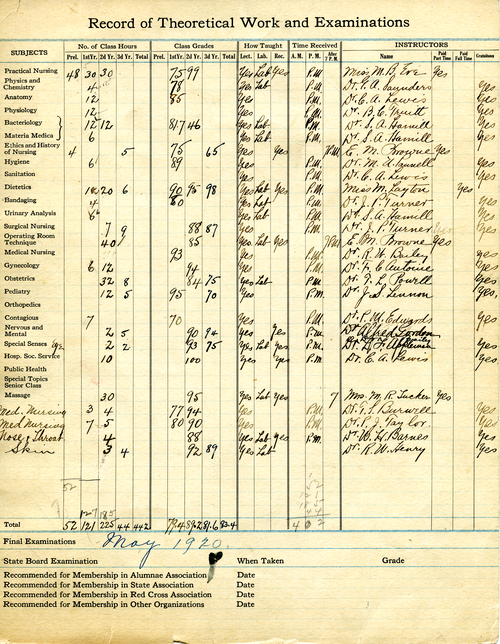 Record of Theoretical Work and Examinations
SUBJECTS No. of Class Hours Class Grades How Taught Time Received INSTRUCTORS
Prel. 1stYr. 2d Yr. 3d Yr. Total Prel. 1stYr. 2d Yr. 3d Yr. Total Lect. Lab. Rec. A. M. P. M. After 7 P. M. Name Paid Part Time Paid Full Time Gratuitous
Practical Nursing 48 30 30 75 99 Yes Lab Yes P.M. Miss M. B. Eve Yes
Physics and
Chemistry 4 78 Yes Lab P.M. Dr. G. A. Saunders Yes
Anatomy 12 85 Yes P.M. Dr. E. A. Lewis Yes
Physiology 12 Yes P.M. Dr. B. E. Yes
Bacteriology 12 12 81.7 46 Yes Lab P.M. Dr. S. A. Hamill Yes
Materia Medica 6 Yes Lab P.M. Dr. S. A. Hamill Yes
Ethics and History
of Nursing 4 5 75 65 Yes Yes 7P.M. E. M. Browne Yes
Hygiene 6 89 Yes P.M. Dr. M. Yes
Sanitation Yes P.M. Dr. E. A. Lewis Yes
Dietetics 18 20 6 90 95 98 Yes Lab Yes P.M. Miss M. Layton Yes
Bandaging 4 80 Yes Lab P.M. Dr. J. P. Turner Yes
Urinary Analysis 6 Yes Lab P.M. Dr. S. A. Hamill Yes
Surgical Nursing 7 9 88 87 Yes P.M. Dr. J. P. Turner Yes
Operating Room
Technique 40 85 Yes Lab Yes 7P.M. E. M. Browne Yes
Medical Nursing 93 Yes P.M. Dr. R. W. Bailey Yes
Gynecology 6 12 94 Yes P.M. Dr. Antoine Yes
Obstetrics 32 8 84 75 Yes Lab P.M. Dr. F. L. Powell Yes
Pediatry 12 5 95 70 Yes P.M. Dr. Jed Lennon Yes
Orthopedics
Contagious 7 70 Yes P.M. Dr. P. M. Edwards Yes
Nervous and
Mental 2 5 90 94 Yes Yes P.M. Dr. Alfred Gordon Yes
Special Senses Eye 2 2 93 75 Yes Lab Yes P.M. Dr. Yes
Hosp. Soc. Service 10 100 Yes Yes P.M. Dr. E. A. Lewis Yes
Public Health
Special Topics
Senior Class
Massage 30 95 Yes Lab Yes 7 Mrs. M. R. Tucker Yes
Med. Nursing 3 4 77 94 Yes P.M. Dr. T. S. Burwell Yes
Med Nursing 7 5 80 90 Yes P.M. Dr. P. J. Taylor Yes
Nose & Throat 4 88 Yes Lab Yes P.M. Dr. W. H. Barnes Yes
Skin 3 4 92 89 Yes Lab Dr. R. W. Henry Yes
52
127 185
Total 52 121 225 44 442 79.4 89.2 81.6 83.4 4 0 2
Final Examinations May 1920.
State Board Examination When Taken Grade
Recommended for Membership in Alumnae Association Date
Recommended for Membership in State Association Date
Recommended for Membership in Red Cross Association Date
Recommended for Membership in Other Organizations Date